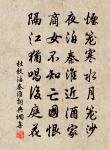 煙笼寒水月笼沙
夜泊秦淮近酒家
商女不知亡國恨
隔江猶唱後庭花
杜牧泊秦淮